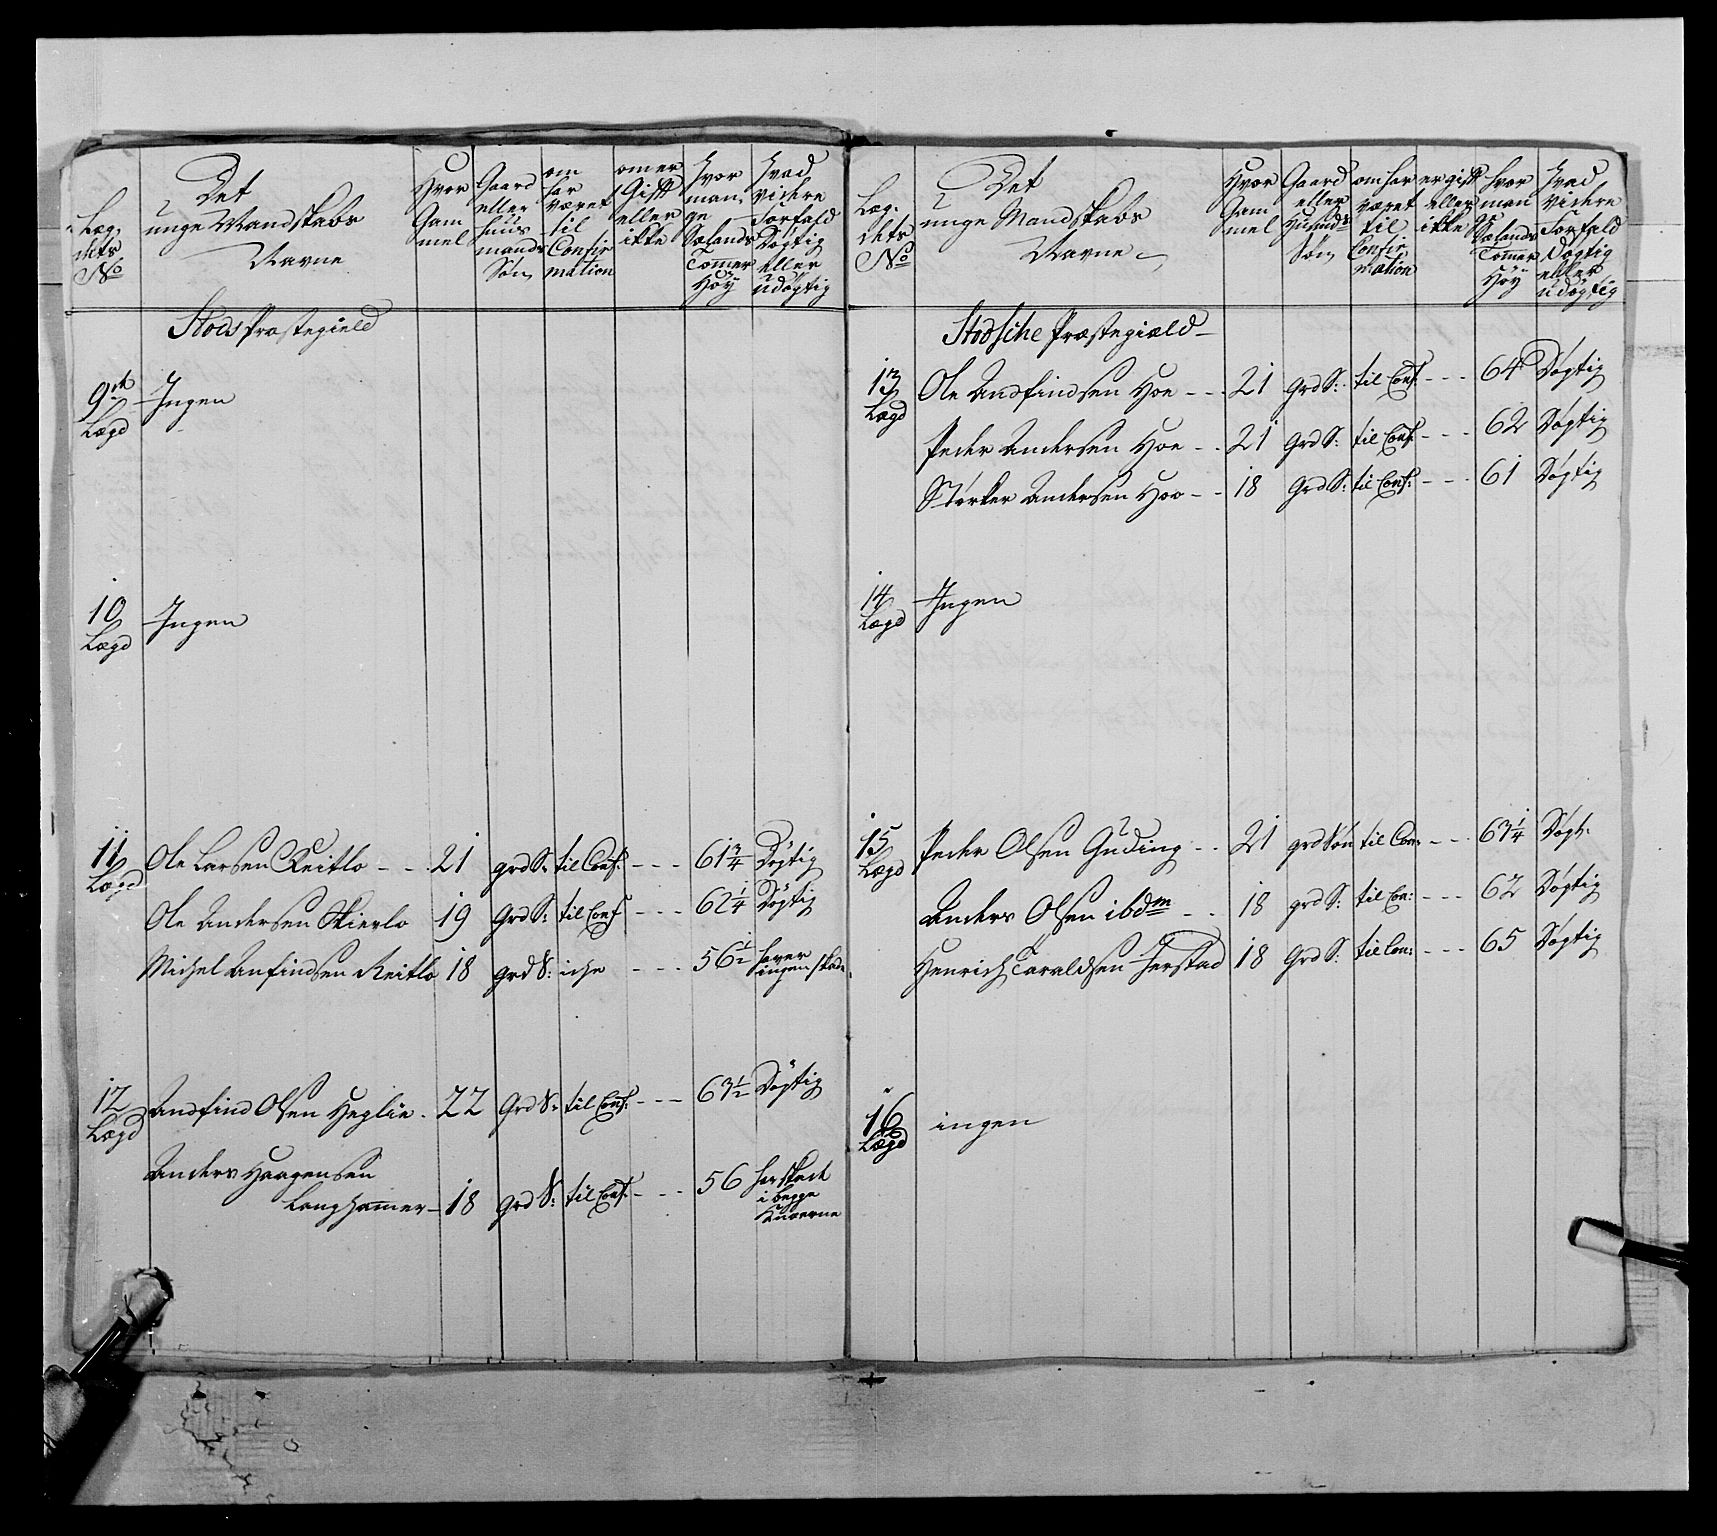 Læg,
dets
No
Det
unge Mandskabs
Navne
Hvor
Gam
mel
Gaard
eller
huus
mands
Søn
om
har
været
til
Confir
mation
om er
Gift
eller
ikke
Hvor
man,
ge
Sælands
Tomer
Höy
Hvad
vidre
Forfald
Døgtig
eller
udøgtig
Stods Præstegield
9de Lægd Ingen
10 Lægd Ingen
11 Lægd Ole Larsen Reitlo - - 21 grd S: til Conf: - - - 61 3/4 Døgtig
Ole Andersen Skierlo 19 Grd S: til Conf - - - 62 1/4 Døgtig
Michel Anfindsen Reitlo 18 grd S: iche - - - 56 1/2 haver
ingen skade
12 Lægd Andfind Olsen Heglie. 22 Grd S: til Conf: - - - 63 1/2 Døgtig
Anders Haagensen
Langhamer - 18 grd S: til Conf: - - - 56 har skade
i begge
Knæerne
Læg,
dets
No
Det
unge Mandskabs
Navne
Hvor
Gam
mel
Gaard
eller
Husmds
Søn
om har
været
til
Confir,
mation
er gift
eller
ikke
hvor
man
Sælands
Tomer
Höy
Hvad
vidre
Forfald
Døgtig
eller
udøgtig
Stodsche Præstegiæld
13 Lægd Ole Andfindsen Hoe - - 21 grd S: til Conf: - - - 64 Døgtig
Peder Andersen Hoe - - 21 Grd S: til Conf: - - - 62 Døgtig
Størker Andersen Hoe - - 18 Grd S: til Conf: - - - 61 Døgtig
14 Lægd Ingen
15 Lægd Peder Olsen Guding - - 21 grd Søn til Con: - - - 63 1/4 Døgt.
Anders Olsen ibdm - - 18 grd S: til Con: - - - 62 Døgtig
Henrich Taraldsen Herstad 18 Grd S: til Con: - - - 65 Døgtig
16 Lægd ingen